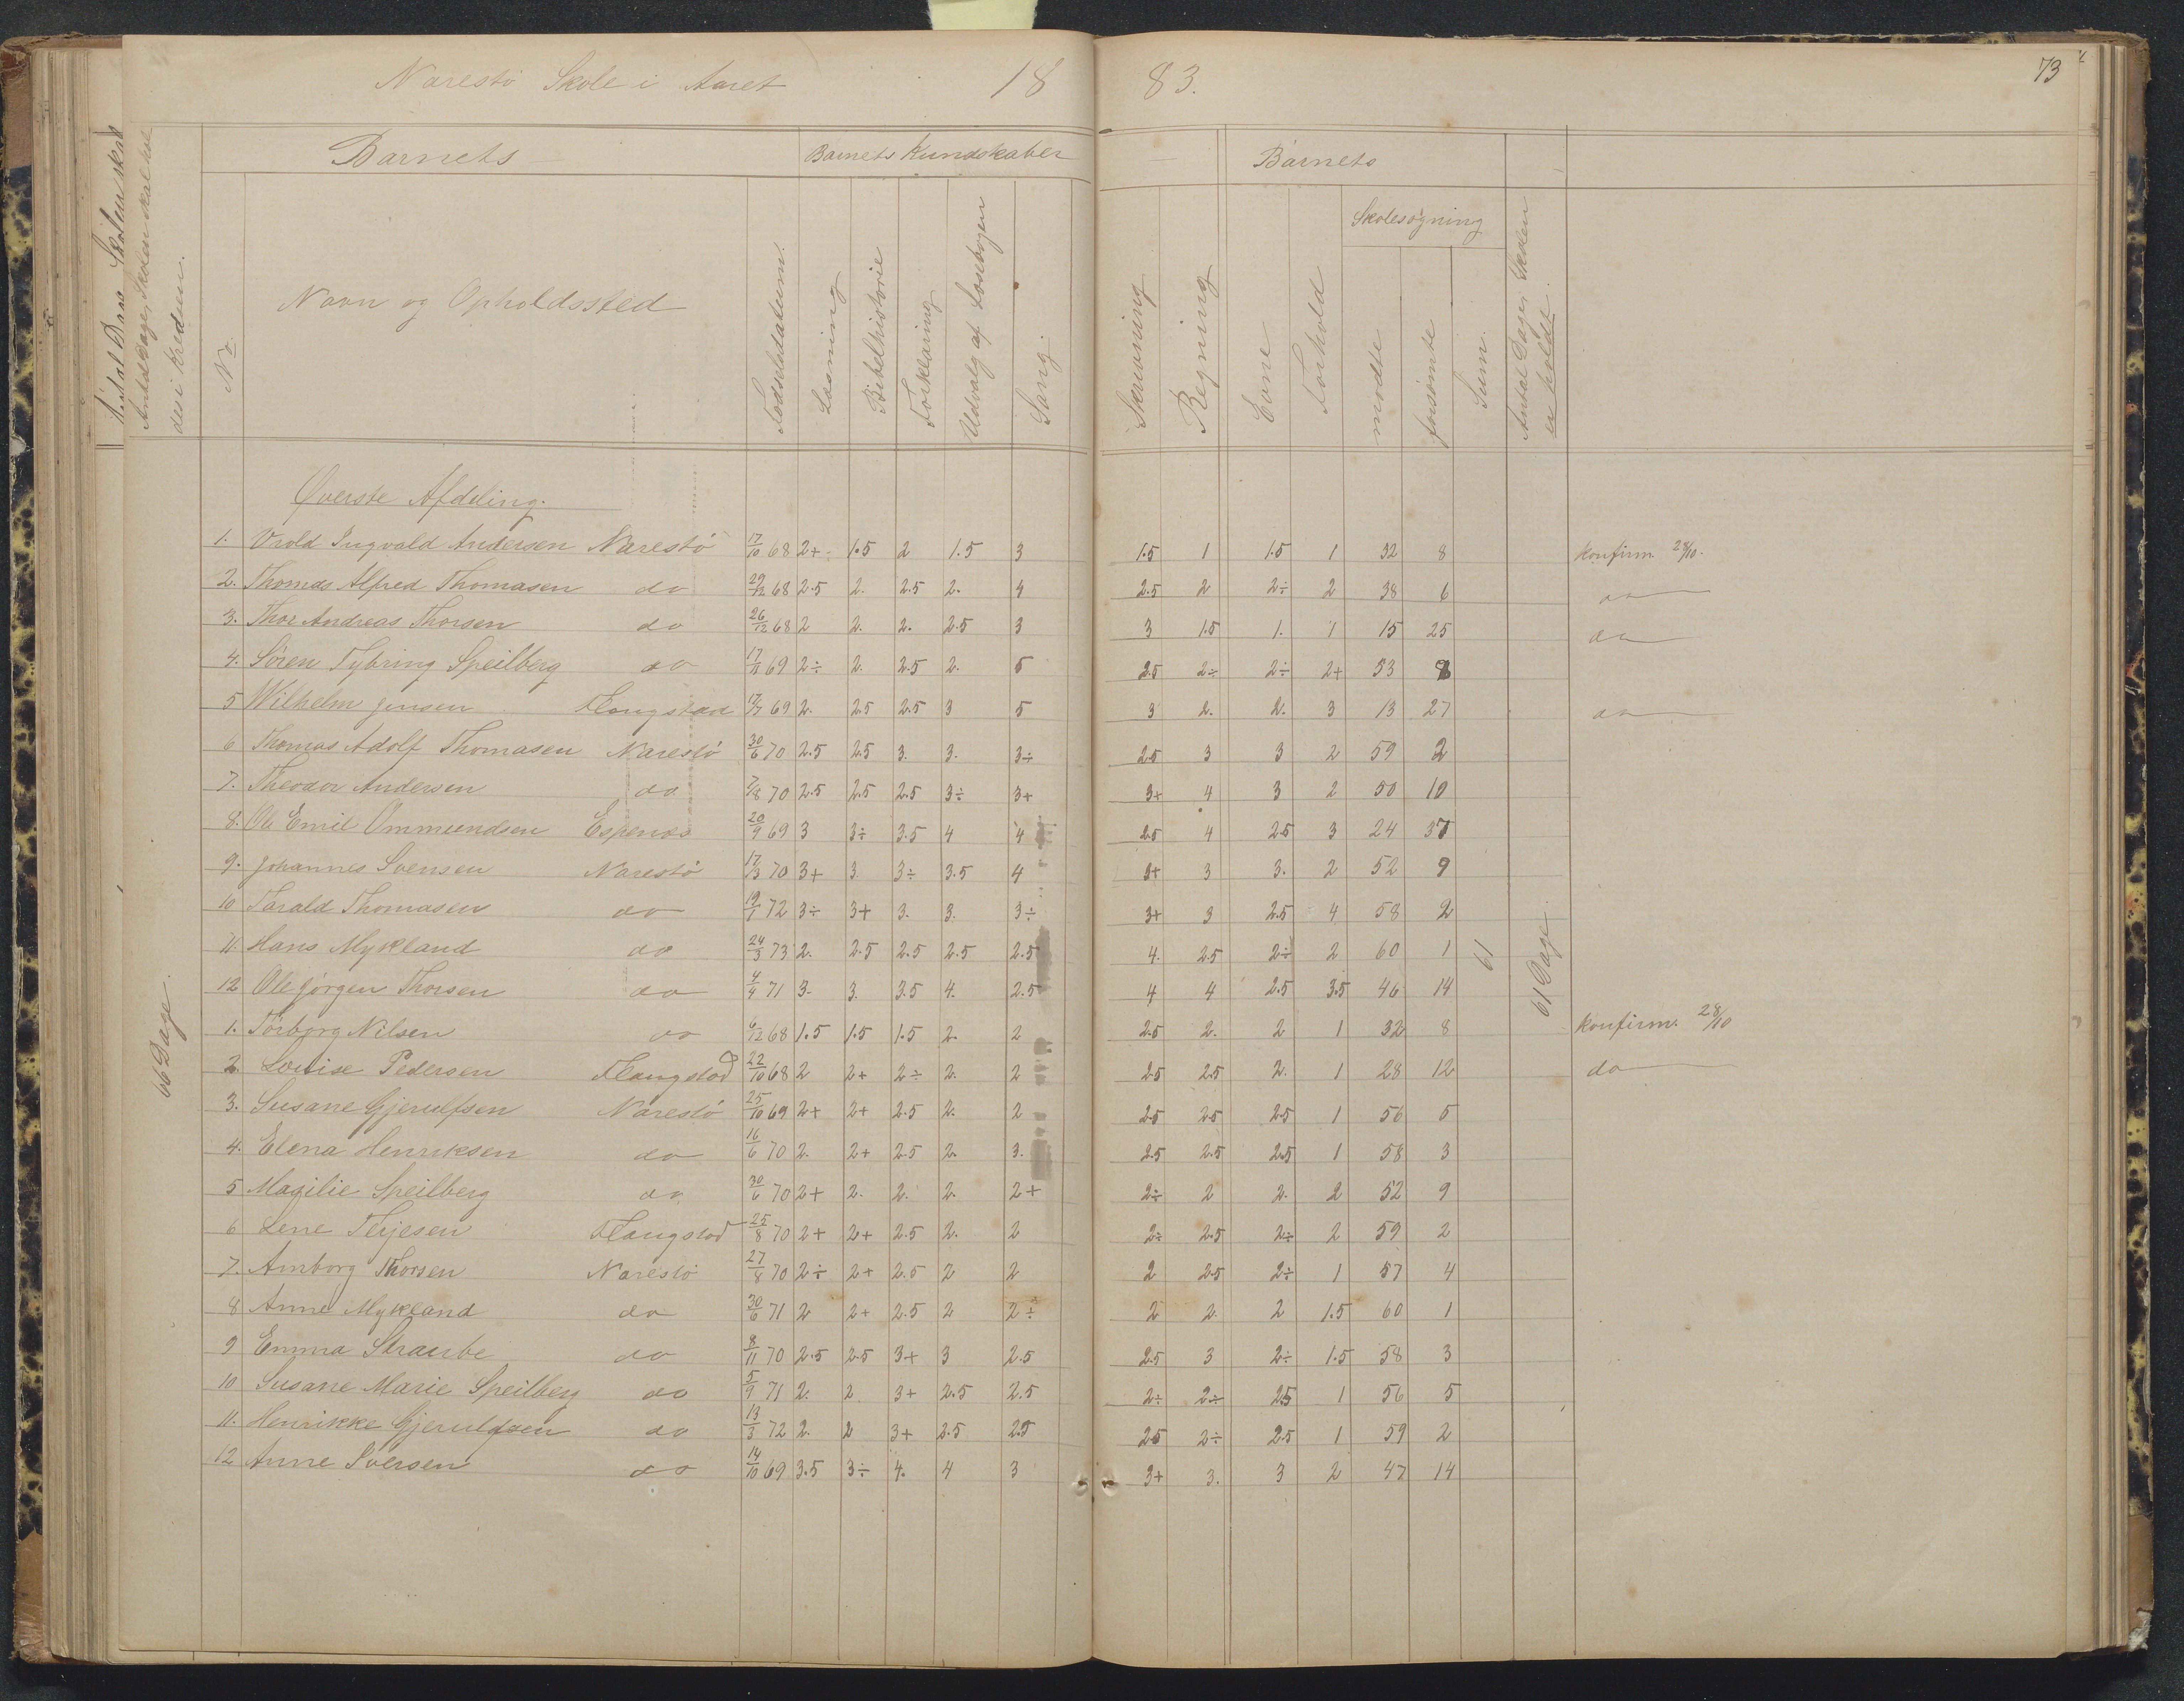 Narestö Skole i Aaret 18 83. 73
Barnets Barnets Kundskaber Barnets
Antal Dage, Skolen skal holdes i Kredsen.
No
Navn og Opholdssted
Fødselsdatum.
Læsning
Bibelhistorie
Forklaring
Udvalg af Læsebogen
Sang.
Skrivning
Regning
Evne
Forhold
Skolesøgning
mødte
forsømte
Sum.
Antal Dage Skolen er holdt.
Øverste Afdeling.
1. Vrold Ingvald Andersen Narestö 17/10 68 2+ 1.5 2 1.5 3 1.5 1 1.5 1 32 8 konfirm. 28/10.
2. Thomas Alfred Thomasen do 29/12 68 2.5 2. 2.5 2. 4 2.5 2 2÷ 2 38 6 do
3. Thor Andreas Thorsen do 26/12 68 2 2. 2. 2.5 3 3 1.5 1. 1 15 25 do
4. Søren Tybring Speilberg do 17/11 69 2÷ 2. 2.5 2. 5 2.5 2÷ 2÷ 2+ 53 8
5 Wilhelm Jensen Flangstad 17/7 69 2. 2.5 2.5 3 5 3 2. 2. 3 13 27 do
6 Thomas Adolf Thomasen Narestö 30/6 70 2.5 2.5 3. 3. 3÷ 2.5 3 3 2 59 2
7. Theodor Andersen do 7/8 70 2.5 2.5 2.5 3÷ 3+ 3+ 4 3 2 50 10
8. Ole Emil Ommundsen Espenæs 20/9 69 3 3÷ 3.5 4 4 2.5 4 2.5 3 24 37
9. Johannes Svensen Narestö 17/3 70 3+ 3 3÷ 3.5 4 3+ 3 3. 2 52 9
10 Tarald Thomasen do 19/1 72 3÷ 3+ 3. 3. 3÷ 3+ 3 2.5 4 58 2
11. Hans Mykland do 24/3 73 2. 2.5 2.5 2.5 2.5 4. 2.5 2÷ 2 60 1 61 61 Dage.
12 Ole Jörgen Thorsen do 4/4 71 3. 3. 3.5 4. 2.5 4 4 2.5 3.5 46 14
66 Dage.
1. Torborg Nilsen do 6/12 68 1.5 1.5 1.5 2. 2 2.5 2. 2 1 32 8 konfirm. 28/10
2. Louise Pedersen Flangstad 22/10 68 2 2+ 2÷ 2. 2 2.5 2.5 2. 1 28 12 do
3. Susane Gjerulfsen Narestö 25/10 69 2+ 2+ 2.5 2. 2 2.5 2.5 2.5 1 56 5
4. Elena Henriksen do 16/6 70 2. 2+ 2.5 2. 3. 2.5 2.5 2.5 1 58 3
5 Magilie Speilberg do 30/6 70 2+ 2. 2. 2. 2+ 2÷ 2 2. 2 52 9
6 Lene Terjesen Flangstad 25/8 70 2+ 2+ 2.5 2. 2 2÷ 2.5 2÷ 2 59 2
7. Amborg Thorsen Narestö 27/8 70 2÷ 2+ 2.5 2 2 2 2.5 2÷ 1 57 4
8 Anne Mykland do 30/6 71 2 2+ 2.5 2 2÷ 2 2. 2 1.5 60 1
9 Emma Straube do 8/11 70 2.5 2.5 3+ 3 2.5 2.5 3 2÷ 1.5 58 3
10 Susane Marie Speilberg do 5/9 71 2. 2 3+ 2.5 2.5 2÷ 2÷ 2.5 1 56 5
11. Henrikke Gjerulfsen do 13/3 72 2. 2 3+ 2.5 2.5 2.5 2÷ 2.5 1 59 2
12 Anne Iversen do 14/10 69 3.5 3÷ 4. 4 3 3+ 3. 3 2 47 14